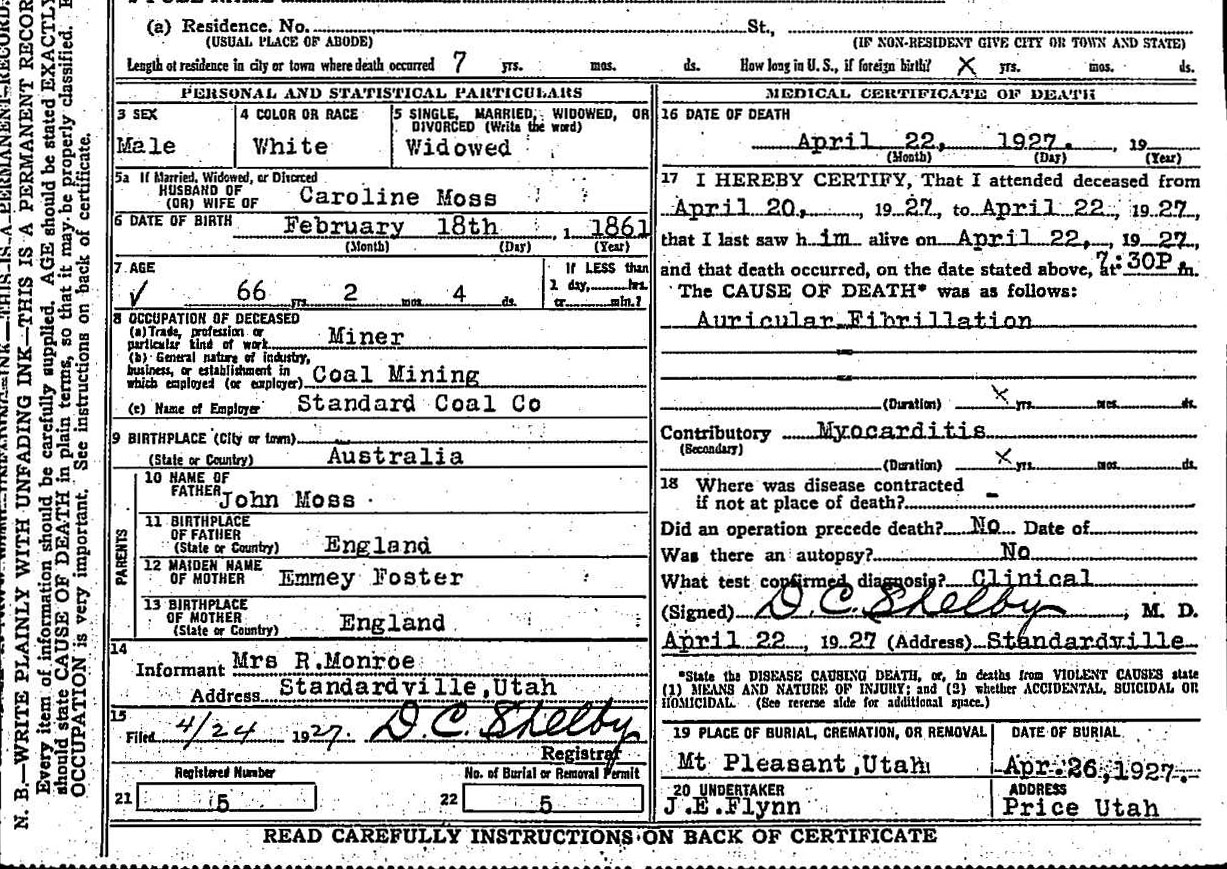 (a) Residence. No. St.,
(USUAL PLACE OF ABODE) (IF NON-RESIDENT GIVE CITY OR TOWN AND STATE)
Length of residence in city or town where death occurred 7 yrs. mos. ds. How long in U. S., if foreign birth? X yrs. mos. ds.
PERSONAL AND STATISTICAL PARTICULARS
3 SEX
Male
4 COLOR OR RACE
White
5 SINGLE, MARRIED, WIDOWED, OR
DIVORCED (Write the word)
Widowed
5a If Married, Widowed, or Divorced
HUSBAND OF
(OR) WIFE OF Caroline Moss
6 DATE OF BIRTH February 18th , 1 1861
(Month) (Day) (Year)
7 AGE
✓ 66 yrs. 2 mos. 4 ds.
If LESS than
1 day, hrs.
or min.?
8 OCCUPATION OF DECEASED
(a) Trade, profession or
particular kind of work Miner
(b) General nature of industry,
business, or establishment in
which employed (or employer) Coal Mining
(c) Name of Employer Standard Coal Co
9 BIRTHPLACE (City or town)
(State or Country) Australia
PARENTS
10 NAME OF
FATHER John Moss
11 BIRTHPLACE
OF FATHER
(State or Country) England
12 MAIDEN NAME
OF MOTHER Emmey Foster
13 BIRTHPLACE
OF MOTHER
(State or Country) England
14
Informant Mrs R.Monroe
Address Standardville,Utah
15
Filed 4/24 1927. D. C. Shelby
Registrar
Registered Number
21 5
No. of Burial or Removal Permit
22 5
MEDICAL CERTIFICATE OF DEATH
16 DATE OF DEATH
April 22, 1927. , 19
(Month) (Day) (Year)
17 I HEREBY CERTIFY, That I attended deceased from
April 20, , 19 27, to April 22, 19 27,
that I last saw h im alive on April 22, , 19 27,
and that death occurred, on the date stated above, at 7:30P m.
The CAUSE OF DEATH* was as follows:
Auricular Fibrillation
(Duration) X yrs. mos. ds.
Contributory Myocarditis
(Secondary)
(Duration) X yrs. mos. ds.
18 Where was disease contracted
if not at place of death? -
Did an operation precede death? No Date of
Was there an autopsy? No
What test confirmed diagnosis? Clinical
(Signed) D. C. Shelby , M. D.
April 22 , 19 27 (Address) Standardville
*State the DISEASE CAUSING DEATH, or, in deaths from VIOLENT CAUSES state
(1) MEANS AND NATURE OF INJURY; and (2) whether ACCIDENTAL, SUICIDAL OR
HOMICIDAL. (See reverse side for additional space.)
19 PLACE OF BURIAL, CREMATION, OR REMOVAL
Mt Pleasant,Utah
DATE OF BURIAL
Apr. 26,1927.
20 UNDERTAKER
J.E.Flynn
ADDRESS
Price Utah
READ CAREFULLY INSTRUCTIONS ON BACK OF CERTIFICATE
N. B.—WRITE PLAINLY WITH UNFADING INK—THIS IS A PERMANENT RECORD
Every item of information should be carefully supplied. AGE should be stated EXACTLY
should state CAUSE OF DEATH in plain terms, so that it may be properly classified.
OCCUPATION is very important. See instructions on back of certificate.